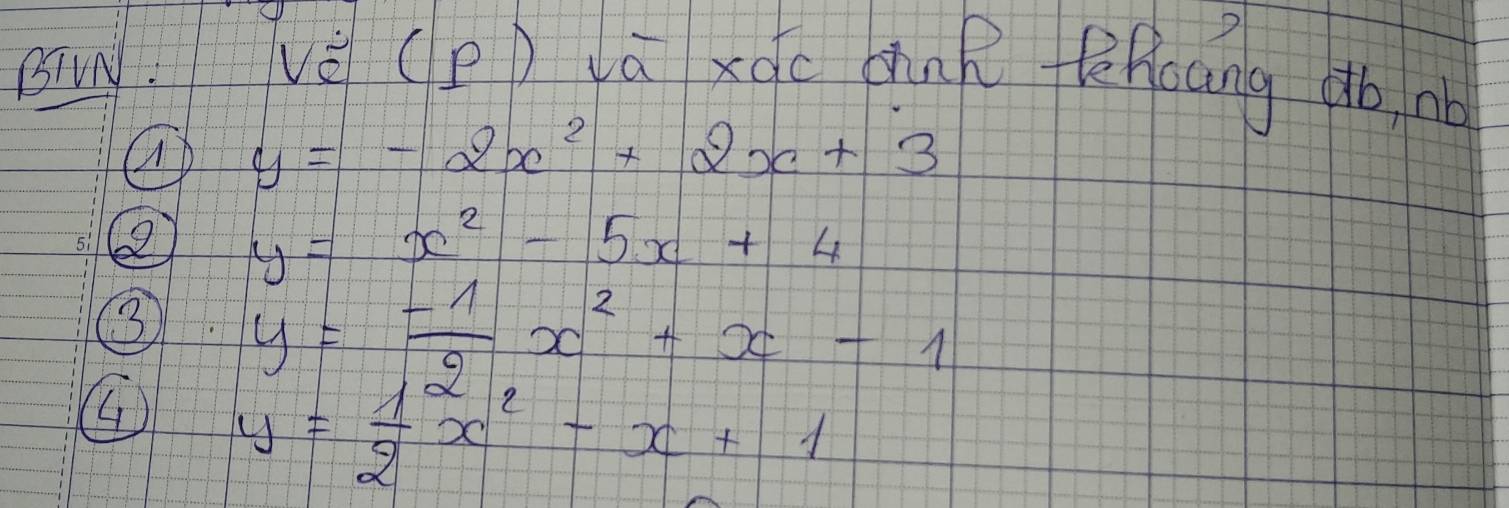 BTVN: Vẽ (P) và xác định khoảng đb, nb
① y = - 2x² + 2x + 3
② y = x² - 5x + 4
5
③ y = -1/2 x² + x - 1
④ y = 1/2 x² - x + 1